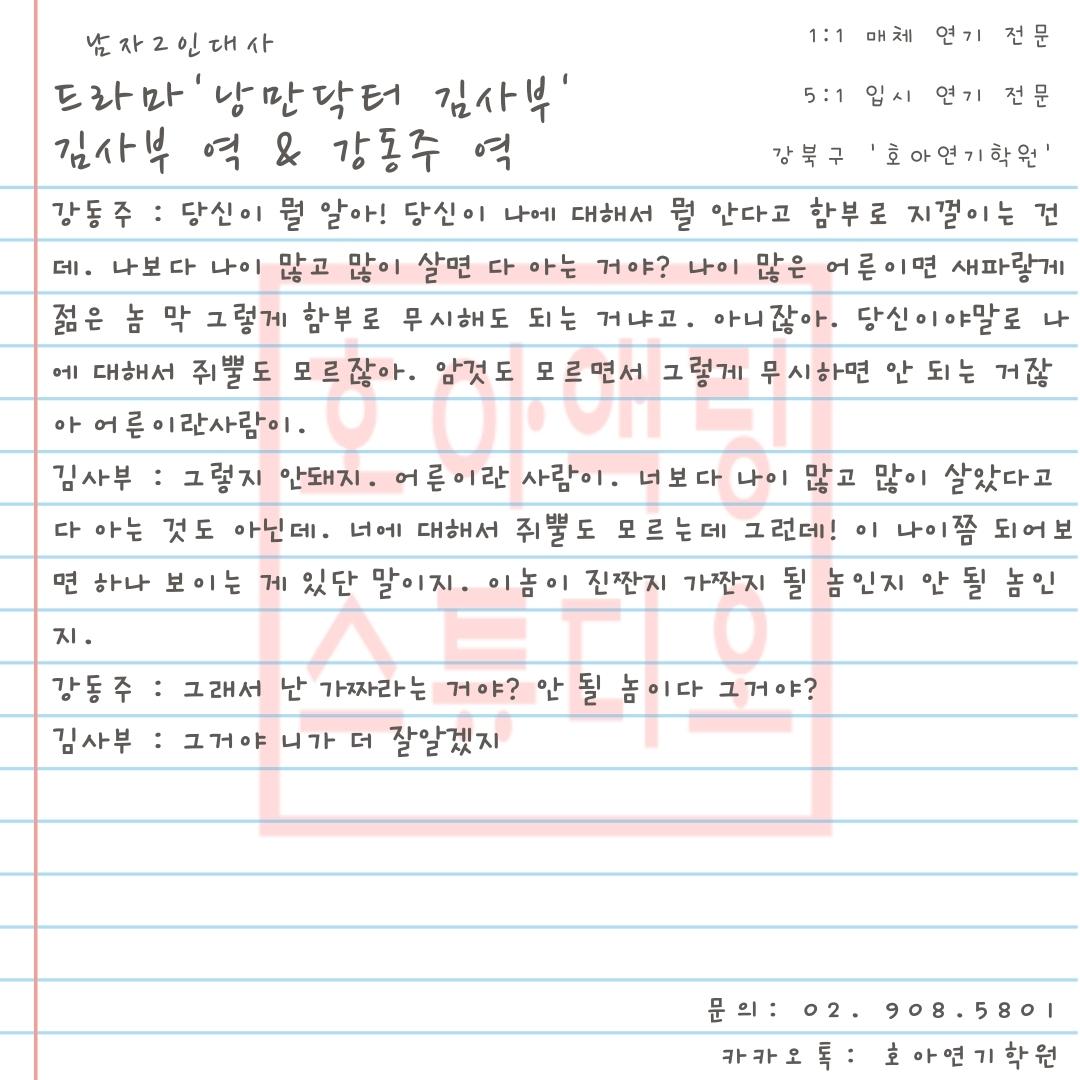 남자2인대사
드라마'낭만닥터 김사부'
김사부 역 & 강동주 역
1:1 매체 연기 전문
5:1 입시 연기 전문
강북구 '호아연기학원'
강동주 : 당신이 뭘 알아! 당신이 나에 대해서 뭘 안다고 함부로 지껄이는 건
데. 나보다 나이 많고 많이 살면 다 아는 거야? 나이 많은 어른이면 새파랗게
젊은 놈 막 그렇게 함부로 무시해도 되는 거냐고. 아니잖아. 당신이야말로 나
에 대해서 쥐뿔도 모르잖아. 암것도 모르면서 그렇게 무시하면 안 되는 거잖
아 어른이란사람이.
김사부 : 그렇지 안돼지. 어른이란 사람이. 너보다 나이 많고 많이 살았다고
다 아는 것도 아닌데. 너에 대해서 쥐뿔도 모르는데 그런데! 이 나이쯤 되어보
면 하나 보이는 게 있단 말이지. 이놈이 진짠지 가짠지 될 놈인지 안 될 놈인
지.
강동주 : 그래서 난 가짜라는 거야? 안 될 놈이다 그거야?
김사부 : 그거야 니가 더 잘알겠지
호아액팅
스튜디오
문의: 02. 908.5801
카카오톡: 호아연기학원